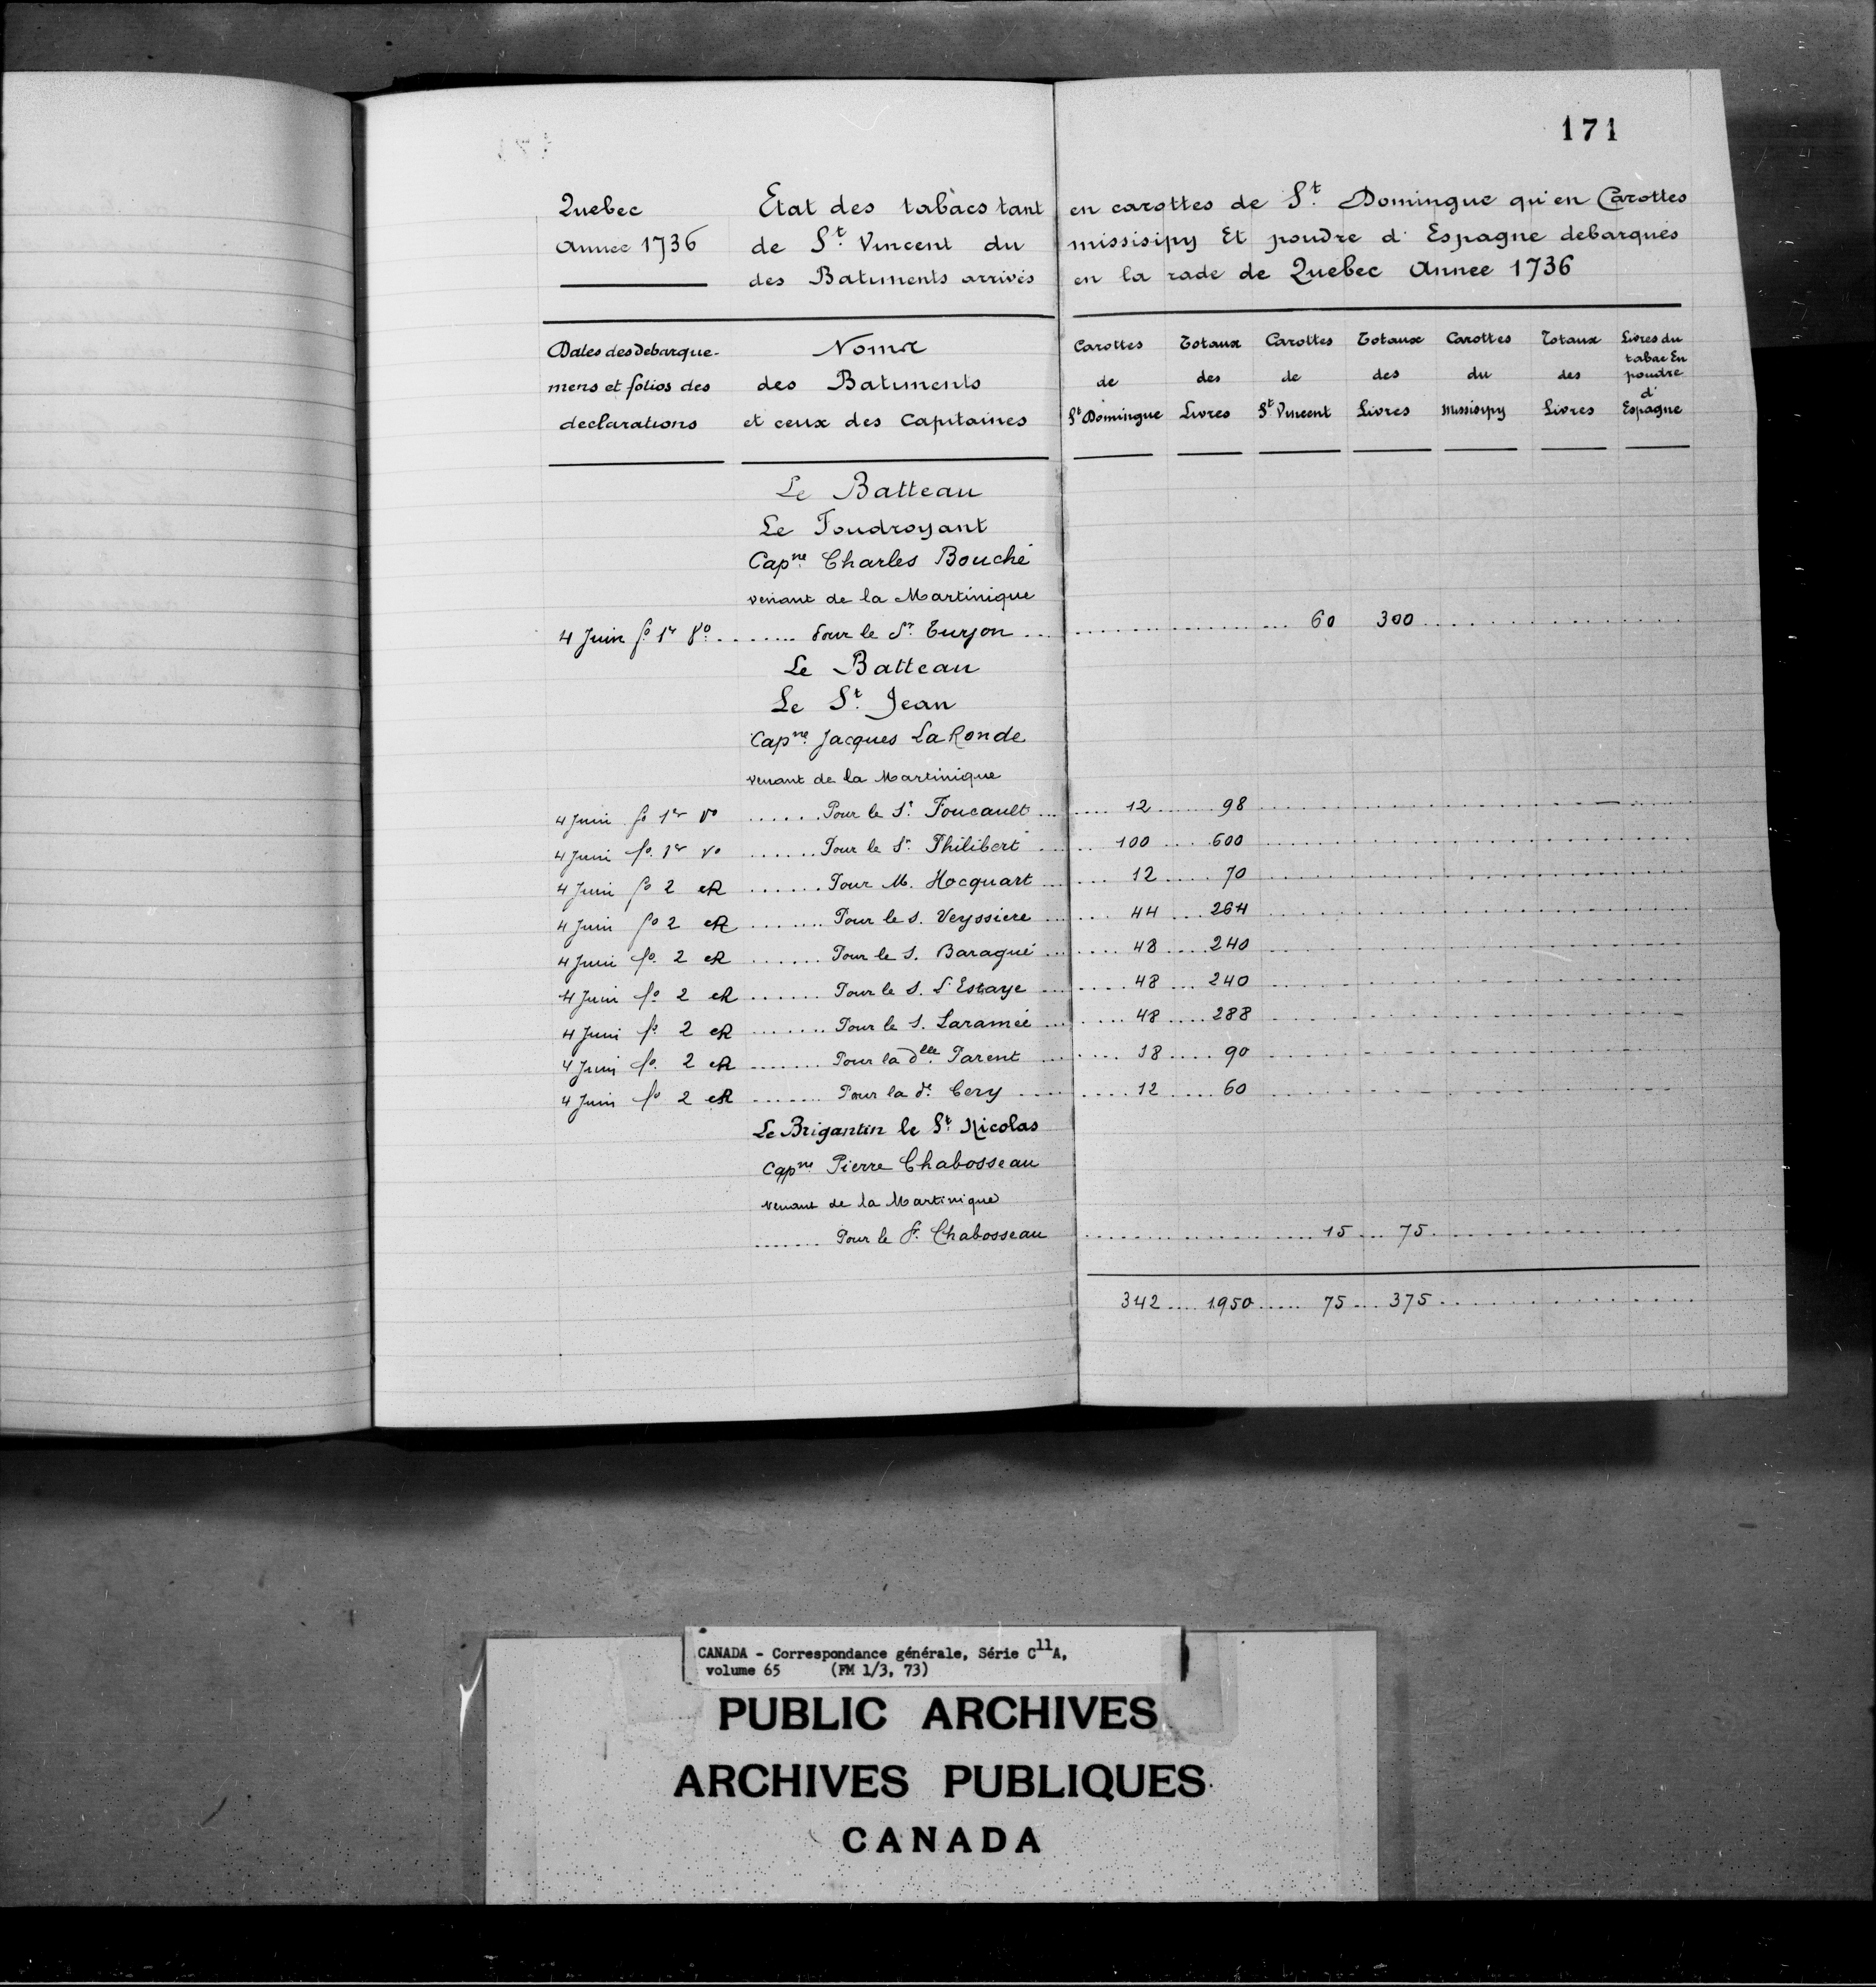 171
Quebec Etat des tabacs tant en carottes de St. Domingue qu'en Carottes
Annee 1736 de St. Vincent du missisipy Et poudre d'Espagne debarqués
des Batiments arrivés en la rade de Quebec Annee 1736
Dates des Debarque- Noms Carottes Totaux Carottes Totaux Carottes Totaux Livres du
tabac En
mens et folios des des Batiments de des de des du des poudre
d'
declarations et ceux des Capitaines St Domingue Livres St. Vincent Livres Missisipy Livres Espagne
Le Batteau
Le Foudroyant
Capne. Charles Bouché
venant de la Martinique
4 Juin fo. 1er Vo. ........ Pour le Sr. Turjon ... 60 300
Le Batteau
Le St. Jean
Capne. Jacques LaRonde
venant de la Martinique
4 Juin fo 1er Vo ...... Pour le Sr. Foucault ... 12 ...... 98
4 Juin fo. 1er Vo ....... Pour le Sr. Philibert ... 100 .... 600
4 Juin fo 2 R ....... Pour M. Hocquart ... 12 ..... 70
4 Juin fo 2 R ....... Pour le S. Veyssiere ... 44 .... 264
4 Juin fo. 2 R ...... Pour le S. Baragué ... 48 .... 240
4 Juin fo. 2 R ...... Pour le S. L'Estaye ... 48 ... 240
4 Juin fo. 2 R ....... Pour le S. Laramée ... 48 .... 288
4 Juin fo. 2 R ....... Pour la dlle. Parent ... 18 ..... 90
4 Juin fo 2 R ....... Pour la de. Cery .... 12 ..... 60
Le Brigantin le St. Nicolas
Capne Pierre Chabosseau
venant de la Martinique
....... Pour le S. Chabosseau ... 15 ... 75
342 .... 1950 ...... 75 ... 375
CANADA - Correspondance générale, Série C11A,
volume 65 (FM 1/3, 73)
PUBLIC ARCHIVES
ARCHIVES PUBLIQUES
CANADA